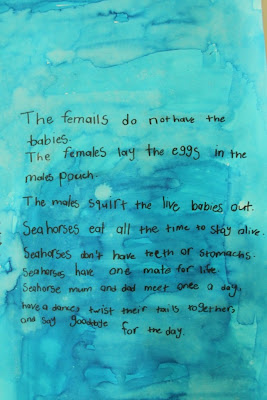 The femails do not have the
babies.
The females lay the eggs in the
males pouch.
The males squirt the live babies out.
Seahorses eat all the time to stay alive.
Seahorses don't have teeth or stomachs.
Seahorses have one mate for life.
Seahorse mum and dad meet once a day,
have a dance, twist their tails together,
and say goodbye for the day.